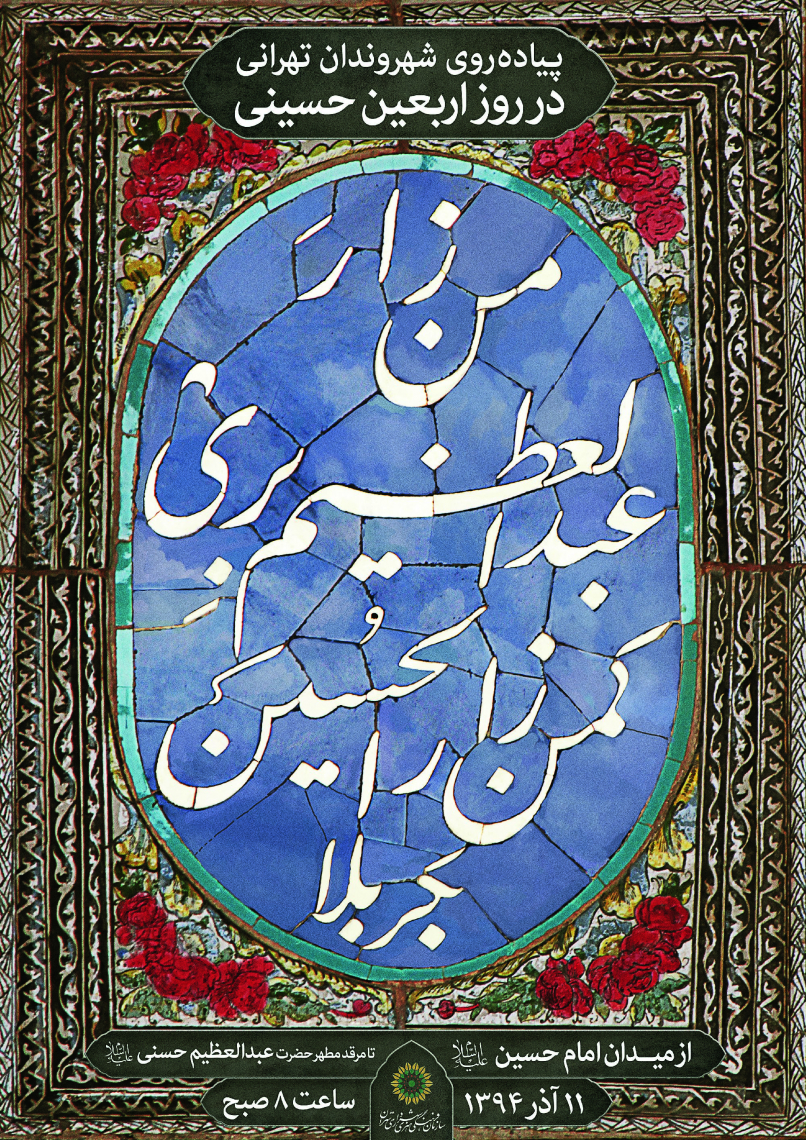 پیاده‌روی شهروندان تهرانی
در روز اربعین حسینی
من زارَ
عبدالعظیم بری
کمن زار الحسین
بکربلا
از میدان امام حسین علیه‌السلام
تا مرقد مطهر حضرت عبدالعظیم حسنی علیه‌السلام
۱۱ آذر ۱۳۹۴
ساعت ۸ صبح